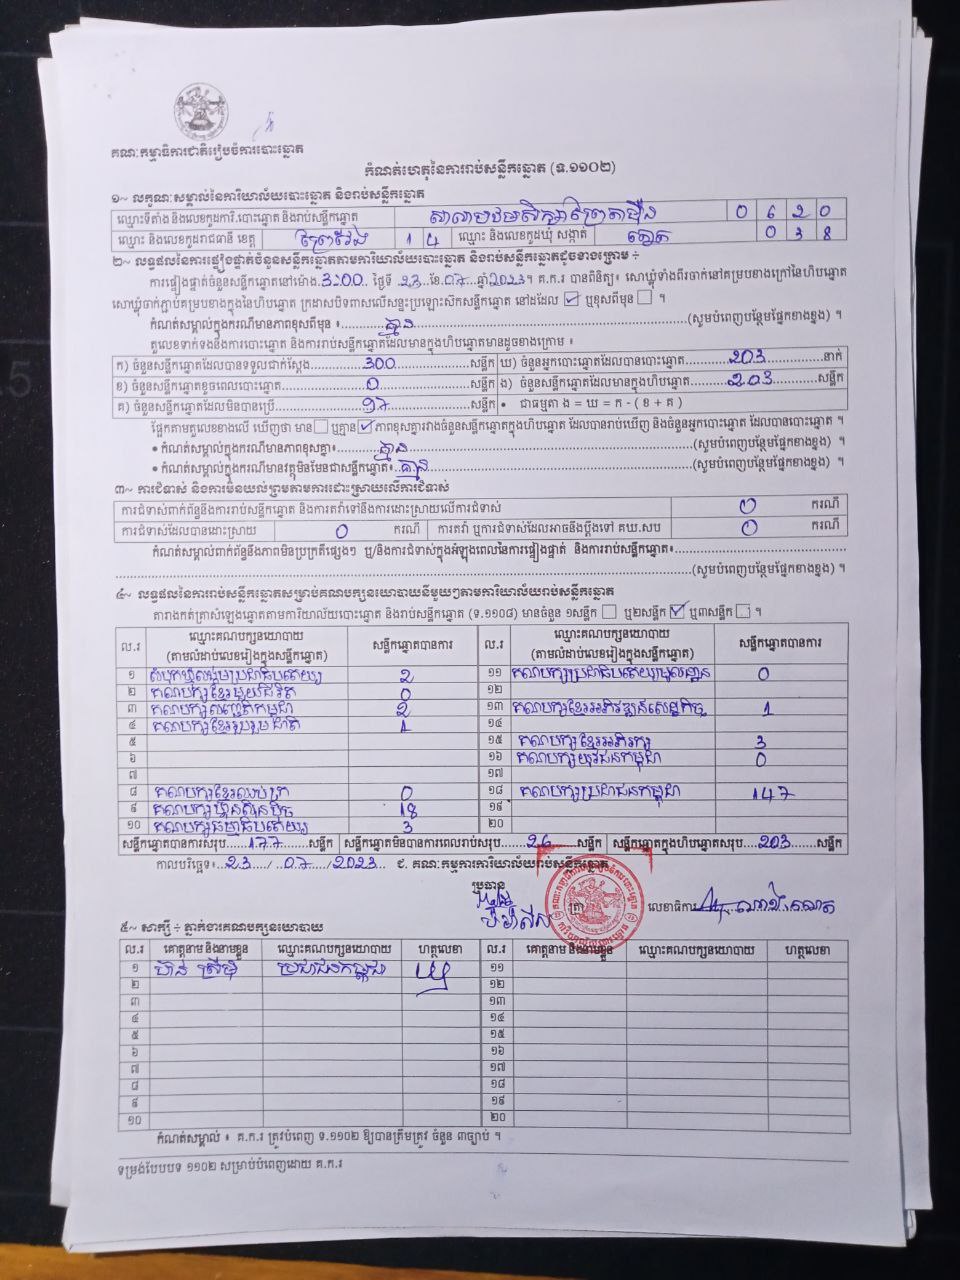 គណៈកម្មាធិការជាតិរៀបចំការបោះឆ្នោត
កំណត់ហេតុនៃការរាប់សន្លឹកឆ្នោត (ទ.១១០២)
១~ លក្ខណៈសម្គាល់នៃការិយាល័យបោះឆ្នោត និងរាប់សន្លឹកឆ្នោត
ឈ្មោះទីតាំង និងលេខកូដការិ.បោះឆ្នោត និងរាប់សន្លឹកឆ្នោត សាលាបឋមសិក្សាព្រៃតាម៉ឹង 0620
ឈ្មោះ និងលេខកូដរាជធានី ខេត្ត ព្រៃវែង 14 ឈ្មោះ និងលេខកូដឃុំ សង្កាត់ 038
២~ លទ្ធផលនៃការផ្ទៀងផ្ទាត់ចំនួនសន្លឹកឆ្នោតតាមការិយាល័យបោះឆ្នោត និងរាប់សន្លឹកឆ្នោតដូចខាងក្រោម ÷
ការផ្ទៀងផ្ទាត់ចំនួនសន្លឹកឆ្នោតនៅម៉ោង 3:00 ថ្ងៃទី 23 ខែ 07 ឆ្នាំ 2023 ។ គ.ក.រ បានពិនិត្យ ៖ សោឃ្លុំទាំងពីរចាក់នៅគម្របខាងក្រៅនៃហិបឆ្នោត
សោឃ្លុំចាក់ភ្ជាប់គម្របខាងក្នុងនៃហិបឆ្នោត ក្រដាសបិទពាសលើសន្ទះប្រឡោះស៊កសន្លឹកឆ្នោត នៅដដែល ☑ ឬខុសពីមុន ☐ ។
កំណត់សម្គាល់ក្នុងករណីមានភាពខុសពីមុន ៖ គ្មាន (សូមបំពេញបន្ថែមផ្នែកខាងខ្នង) ។
តួលេខទាក់ទងនឹងការបោះឆ្នោត និងការរាប់សន្លឹកឆ្នោតដែលមានក្នុងហិបឆ្នោតមានដូចខាងក្រោម ៖
ក) ចំនួនសន្លឹកឆ្នោតដែលបានទទួលជាក់ស្តែង 300 សន្លឹក ឃ) ចំនួនអ្នកបោះឆ្នោតដែលបានបោះឆ្នោត 203 នាក់
ខ) ចំនួនសន្លឹកឆ្នោតខូចពេលបោះឆ្នោត 0 សន្លឹក ង) ចំនួនសន្លឹកឆ្នោតដែលមានក្នុងហិបឆ្នោត 203 សន្លឹក
គ) ចំនួនសន្លឹកឆ្នោតដែលមិនបានប្រើ 97 សន្លឹក • ជាធម្មតា ង = ឃ = ក - ( ខ + គ )
ផ្អែកតាមតួលេខខាងលើ ឃើញថា មាន ☐ ឬគ្មាន ☑ ភាពខុសគ្នារវាងចំនួនសន្លឹកឆ្នោតក្នុងហិបឆ្នោត ដែលបានរាប់ឃើញ និងចំនួនអ្នកបោះឆ្នោត ដែលបានបោះឆ្នោត ។
• កំណត់សម្គាល់ក្នុងករណីមានភាពខុសគ្នា៖ គ្មាន (សូមបំពេញបន្ថែមផ្នែកខាងខ្នង) ។
• កំណត់សម្គាល់ក្នុងករណីមានវត្ថុមិនមែនជាសន្លឹកឆ្នោត៖ គ្មាន (សូមបំពេញបន្ថែមផ្នែកខាងខ្នង) ។
៣~ ការជំទាស់ និងការមិនយល់ព្រមតាមការដោះស្រាយលើការជំទាស់
ការជំទាស់ពាក់ព័ន្ធនឹងការរាប់សន្លឹកឆ្នោត និងការតវ៉ាទៅនឹងការដោះស្រាយទៅលើការជំទាស់ 0 ករណី
ការជំទាស់ដែលបានដោះស្រាយ 0 ករណី ការតវ៉ា ឬការជំទាស់ដែលអាចនឹងប្តឹងទៅ គឃ.សប 0 ករណី
កំណត់សម្គាល់ពាក់ព័ន្ធនឹងភាពមិនប្រក្រតីផ្សេងៗ ឬ/និងការជំទាស់ក្នុងអំឡុងពេលនៃការផ្ទៀងផ្ទាត់ និងការរាប់សន្លឹកឆ្នោត៖
(សូមបំពេញបន្ថែមផ្នែកខាងខ្នង) ។
៤~ លទ្ធផលនៃការរាប់សន្លឹកឆ្នោតសម្រាប់គណបក្សនយោបាយនីមួយៗតាមការិយាល័យរាប់សន្លឹកឆ្នោត
តារាងកត់ត្រាសំឡេងឆ្នោតតាមការិយាល័យបោះឆ្នោត និងរាប់សន្លឹកឆ្នោត (ទ.១១០៨) មានចំនួន ១សន្លឹក ☐ ឬ២សន្លឹក ☑ ឬ៣សន្លឹក ☐ ។
ល.រ ឈ្មោះគណបក្សនយោបាយ (តាមលំដាប់លេខរៀងក្នុងសន្លឹកឆ្នោត) សន្លឹកឆ្នោតបានការ ល.រ ឈ្មោះគណបក្សនយោបាយ (តាមលំដាប់លេខរៀងក្នុងសន្លឹកឆ្នោត) សន្លឹកឆ្នោតបានការ
១ សំបុកឃ្មុំសង្គមប្រជាធិបតេយ្យ 2 ១១ គណបក្សប្រជាធិបតេយ្យមូលដ្ឋាន 0
២ គណបក្សខ្មែររួបរួមជាតិ 0 ១២
៣ គណបក្ស កម្ពុជា 2 ១៣ គណបក្សខ្មែរអភិវឌ្ឍន៍សេដ្ឋកិច្ច 1
៤ គណបក្សខ្មែររួបរួមជាតិ 1 ១៤
៥ ១៥ គណបក្សខ្មែរអភិរក្ស 3
៦ ១៦ គណបក្សយុវជនកម្ពុជា 0
៧ ១៧
៨ គណបក្សខ្មែរឈប់ក្រ 0 ១៨ គណបក្សប្រជាជនកម្ពុជា 147
៩ គណបក្សហ៊្វុនស៊ិនប៉ិច 18 ១៩
១០ គណបក្សធម្មាធិបតេយ្យ 3 ២០
សន្លឹកឆ្នោតបានការសរុប 177 សន្លឹក សន្លឹកឆ្នោតមិនបានការពេលរាប់សរុប 26 សន្លឹក សន្លឹកឆ្នោតក្នុងហិបឆ្នោតសរុប 203 សន្លឹក
កាលបរិច្ឆេទ៖ 23 / 07 / 2023 ជ. គណៈកម្មការការិយាល័យរាប់សន្លឹកឆ្នោត
ប្រធាន ត្រា លេខាធិការ
៥~ សាក្សី ÷ ភ្នាក់ងារគណបក្សនយោបាយ
ល.រ គោត្តនាម និងនាមខ្លួន ឈ្មោះគណបក្សនយោបាយ ហត្ថលេខា ល.រ គោត្តនាម និងនាមខ្លួន ឈ្មោះគណបក្សនយោបាយ ហត្ថលេខា
១ ប្រជាជនកម្ពុជា ១១
២ ១២
៣ ១៣
៤ ១៤
៥ ១៥
៦ ១៦
៧ ១៧
៨ ១៨
៩ ១៩
១០ ២០
កំណត់សម្គាល់ ៖ គ.ក.រ ត្រូវបំពេញ ទ.១១០២ ឱ្យបានត្រឹមត្រូវ ចំនួន ៣ច្បាប់ ។
ទម្រង់បែបបទ ១១០២ សម្រាប់បំពេញដោយ គ.ក.រ